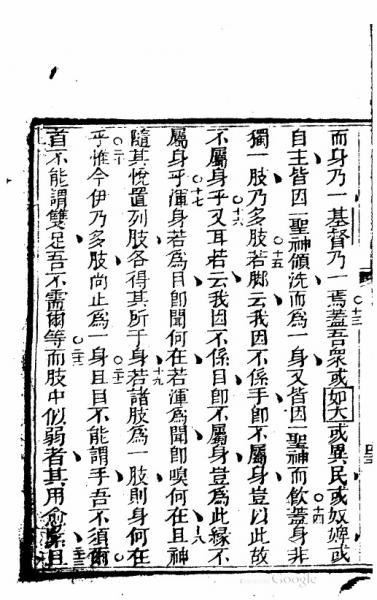 而身乃一基督乃一焉蓋吾眾或如大或異民或奴婢或
自主皆因一聖神領洗而為一身又皆因一聖神而飲蓋身非
獨一肢乃多肢若脚云我因不係手即不屬身豈以此故
不屬身乎又耳若云我因不係目即不屬身豈為此緣不
屬身乎渾身若為目即聞何在若渾為聞即嗅何在且神
隨其悅置列肢各得其所于身若諸肢為一肢則身何在
乎惟今伊乃多肢尚止為一身且目不能謂手吾不須爾
首不能謂雙足吾不需爾等而肢中似弱者其用愈緊且
○十三
○十四
○十五
○十六
○十七
○十八
十九
○二十
○二十一
○二十二
Google